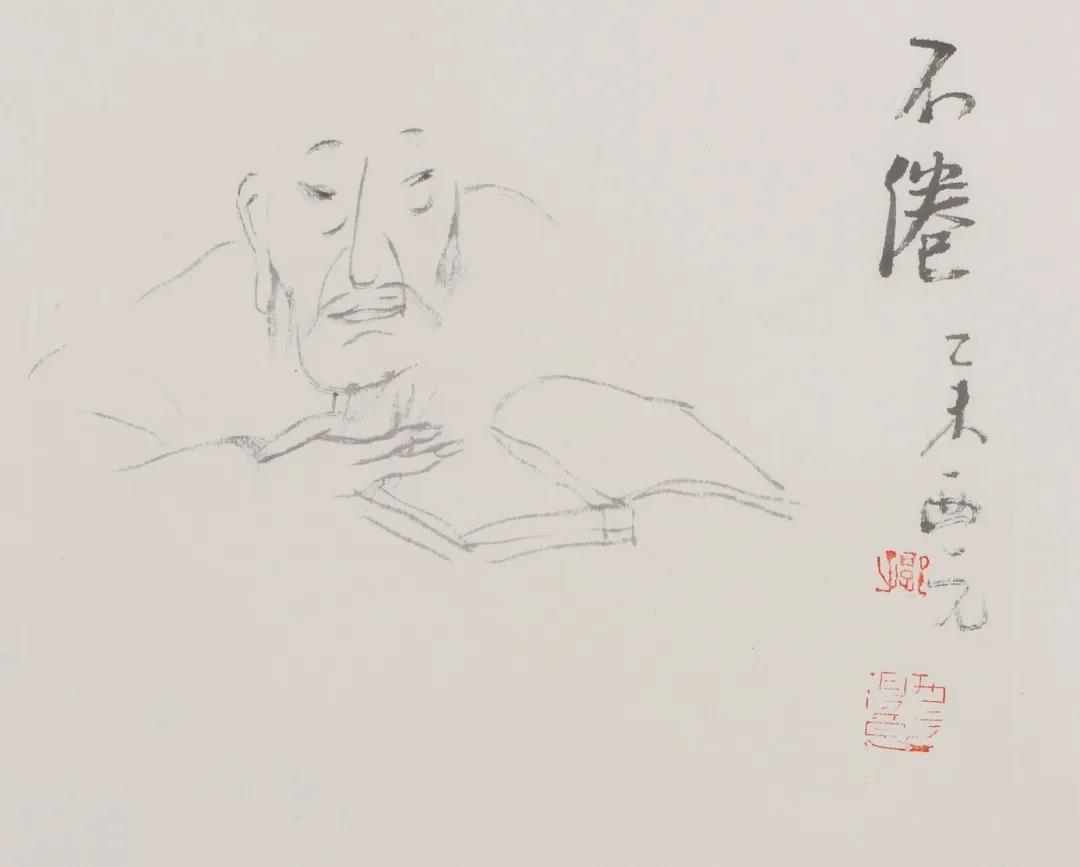 不倦
乙未西元